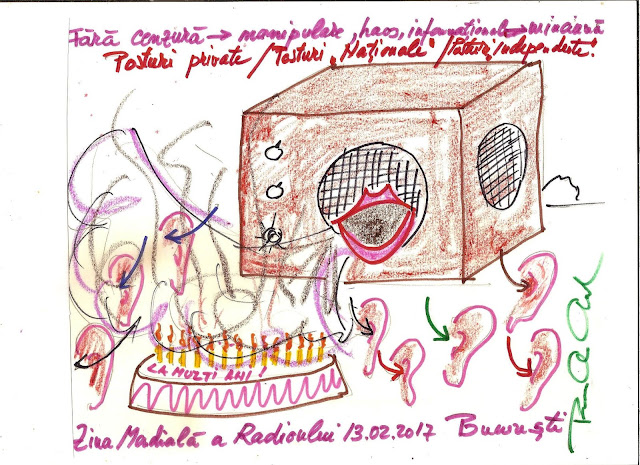 Fără cenzură → manipulare, haos, informațional → minciună
Posturi private / Posturi „Naționale” / Posturi „independente”!
LA MULȚI ANI!
Ziua Mondială a Radioului 13.02.2017 București